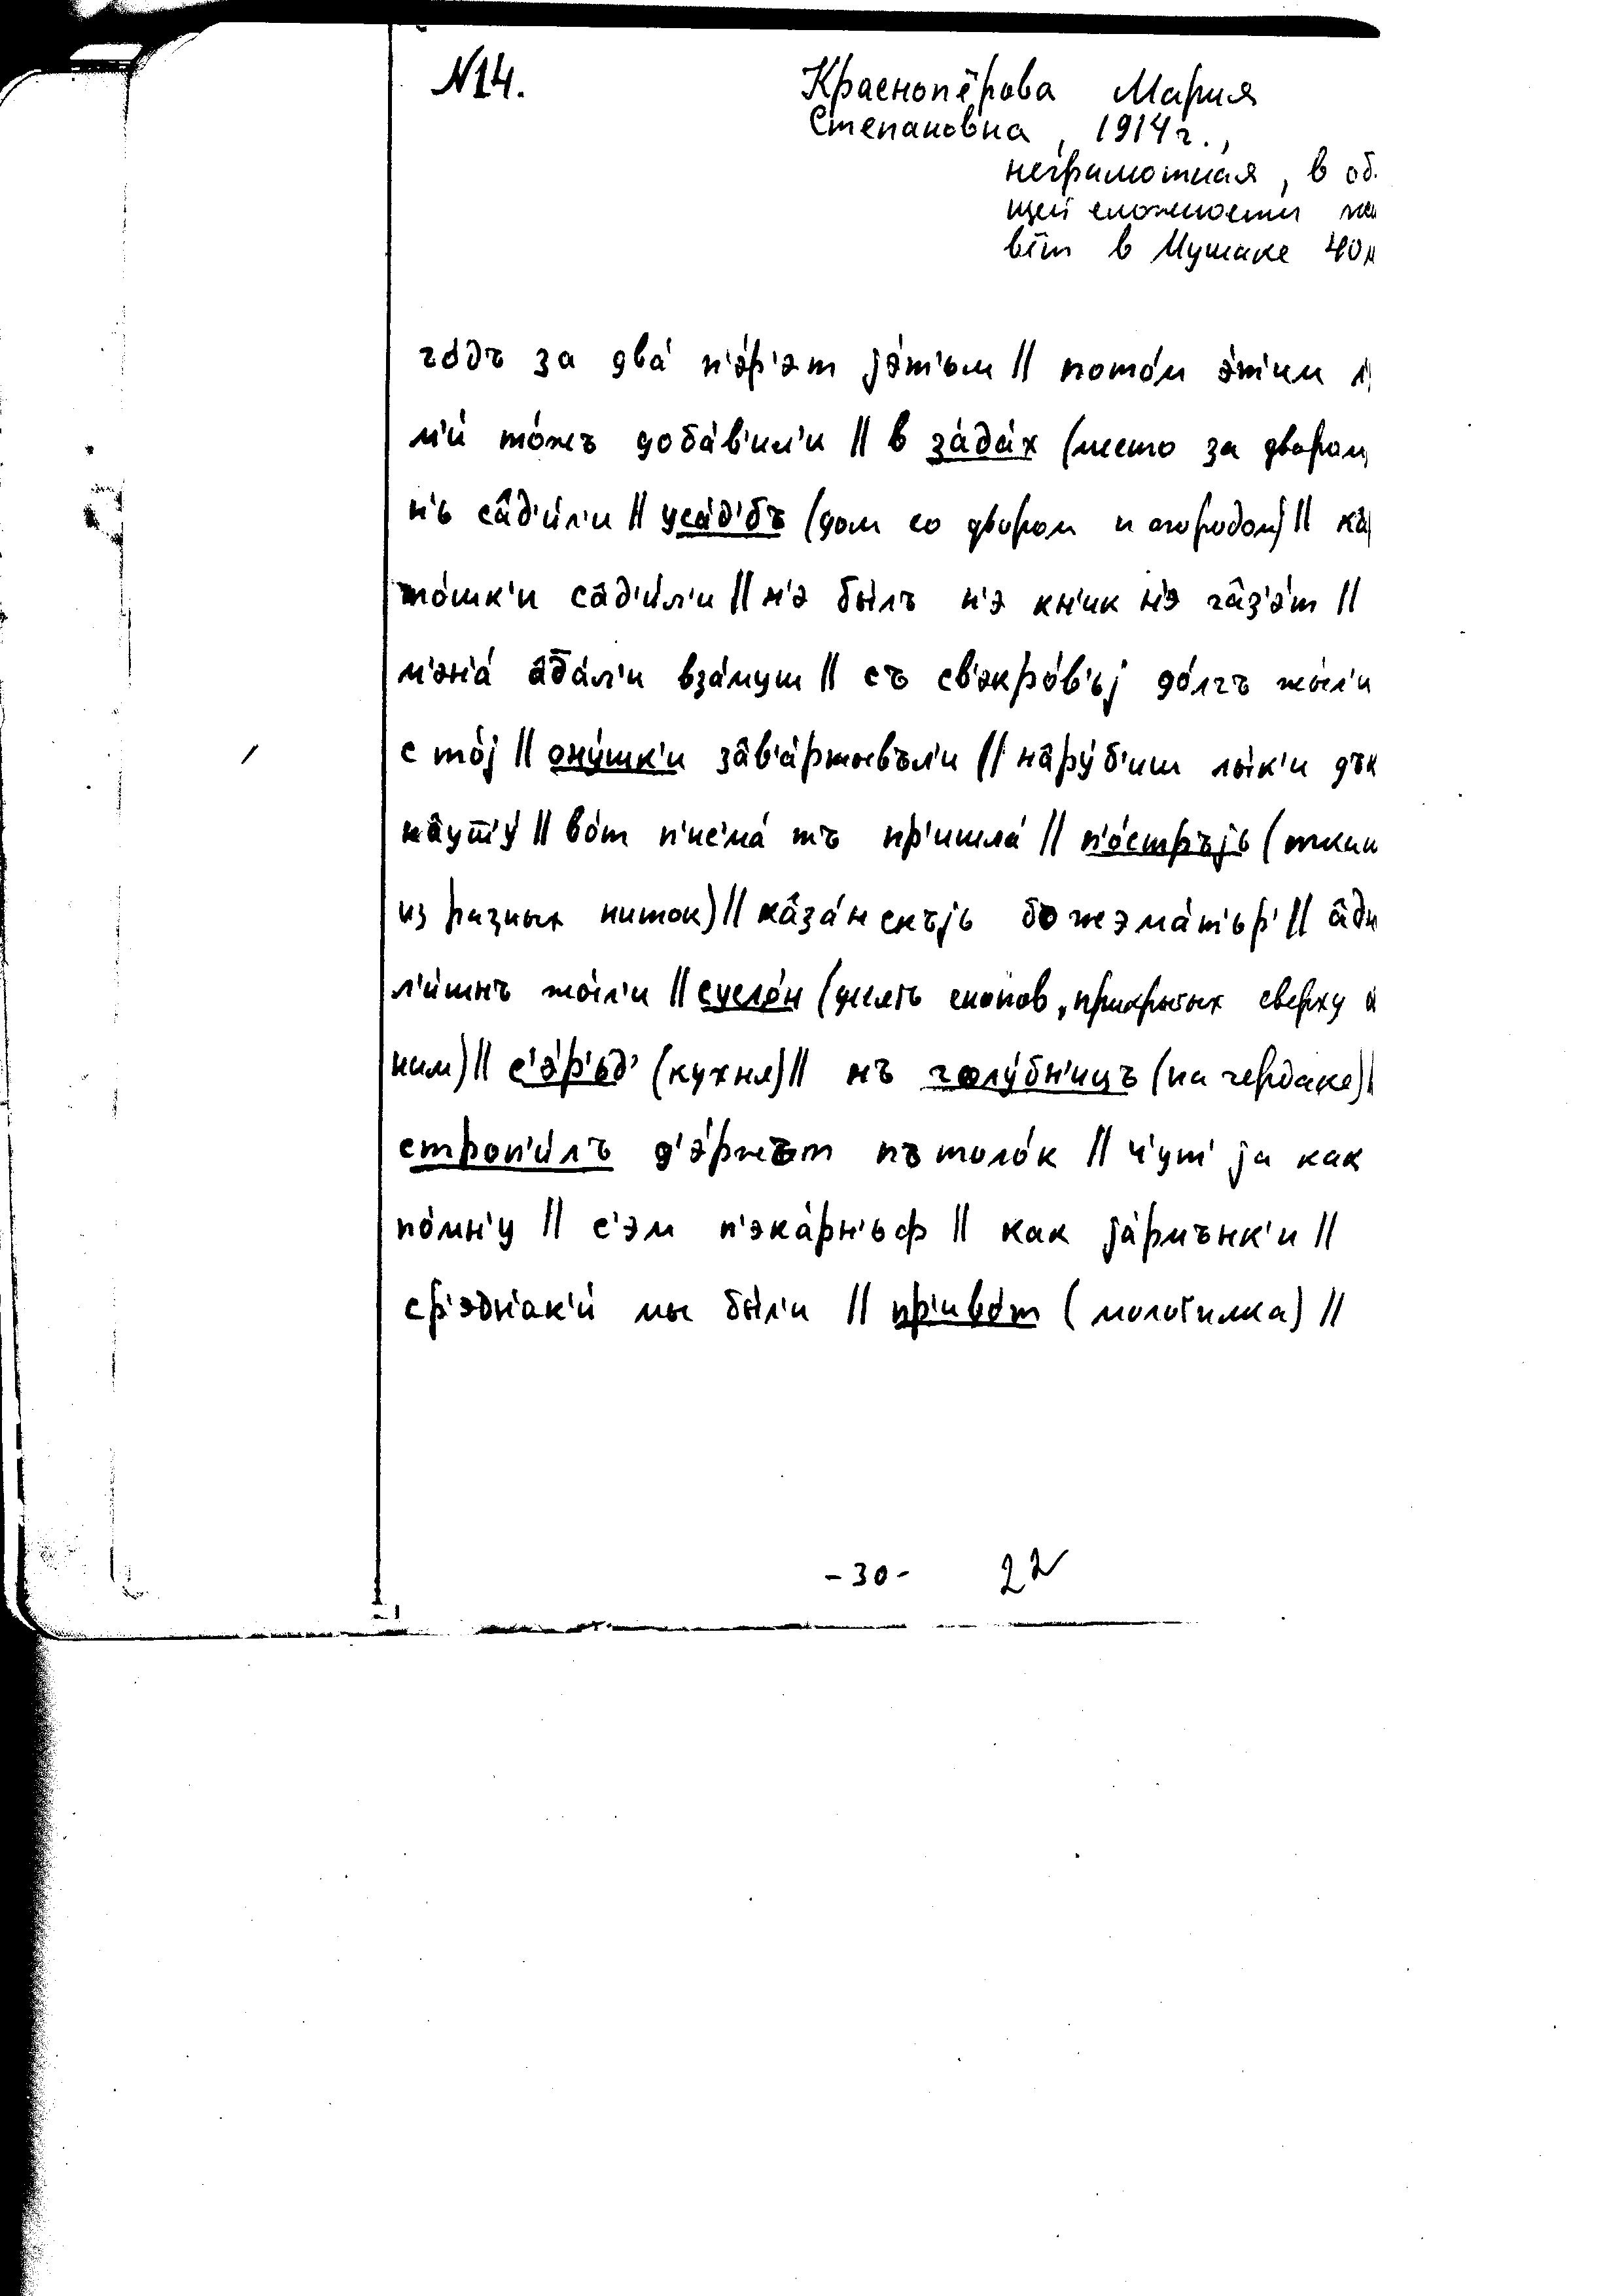 N14. Краснопёрова Мария
Степановна, 1914г.,
неграмотная, в об-
щей сложности жи
вёт в Мушаке 40
го́дъ за два́ п'э́р'эт jэ́т'ьм || пото́м э́т'им
м'и́ то́жъ доба́в'ил'и || в за́да́х (место за двором
н'ь са̂д'и́л'и || уса́д'бъ (дом со двором и огородом) || къ
то́шк'и са̂д'и́л'и || н'э бы́лъ н'э кн'ик н'э га̂з'э́т ||
м'эн'а́ а̂д̅а́л'и вза́муш || съ св'экро́в'ьj до́лгъ жы́л'и
с то́j || ону́шк'и за̂в'а́ртывъл'и || на̂ру́б'иш лы́к'и дък
на̂ут̅'у́ || во́т п'ис'ма́ тъ пр'ишла́ || п'о́стръjь (ткани
из разных ниток) || ка̂за́нскъjь божэма́т'ьр' || а̂ди
л'и́шнъ жы́л'и || сусло́н (десять снопов, прикрытых сверху
ним) || с'э́р'ьд' (кухня) || нъ голу́бн'ицъ (на чердаке) |
строп'и́лъ д'э́ржът пътоло́к || ч'ут' jа как
по́мн'у || с'эм п'эка́рн'ьф || как jа́рмънк'и ||
ср'эдн'ак'и́ мы бы́л'и || пр'иво́т (молотилка) ||
-30- 22